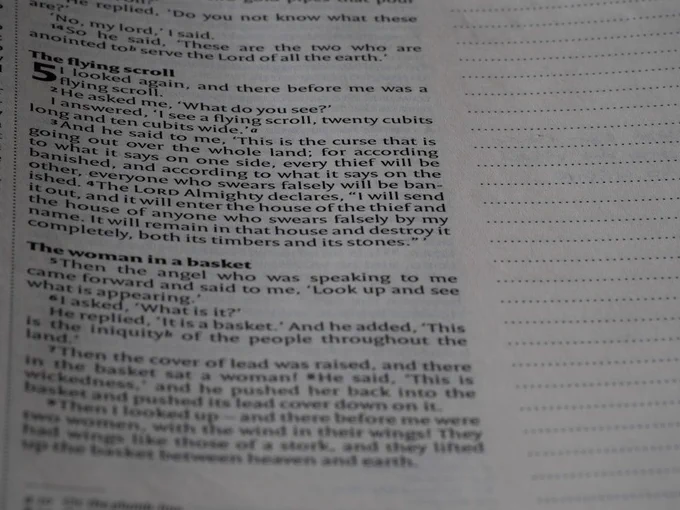 are?'
He replied, 'Do you not know what these
'No, my lord,' I said.
14 So he said, 'These are the two who are
anointed to h serve the Lord of all the earth.'
The flying scroll
5 I looked again, and there before me was a
flying scroll.
2 He asked me, 'What do you see?'
I answered, 'I see a flying scroll, twenty cubits
long and ten cubits wide.' a
3 And he said to me, 'This is the curse that is
going out over the whole land; for according
to what it says on one side, every thief will be
banished, and according to what it says on the
other, everyone who swears falsely will be ban-
ished. 4 The LORD Almighty declares, "I will send
it out, and it will enter the house of the thief and
the house of anyone who swears falsely by my
name. It will remain in that house and destroy it
completely, both its timbers and its stones."'
The woman in a basket
5 Then the angel who was speaking to me
came forward and said to me, 'Look up and see
what is appearing.'
6 I asked, 'What is it?'
He replied, 'It is a basket.' And he added, 'This
is the iniquity b of the people throughout the
land.'
7 Then the cover of lead was raised, and there
in the basket sat a woman! 8 He said, 'This is
wickedness,' and he pushed her back into the
basket and pushed its lead cover down on it.
9 Then I looked up – and there before me were
two women, with the wind in their wings! They
had wings like those of a stork, and they lifted
up the basket between heaven and earth.